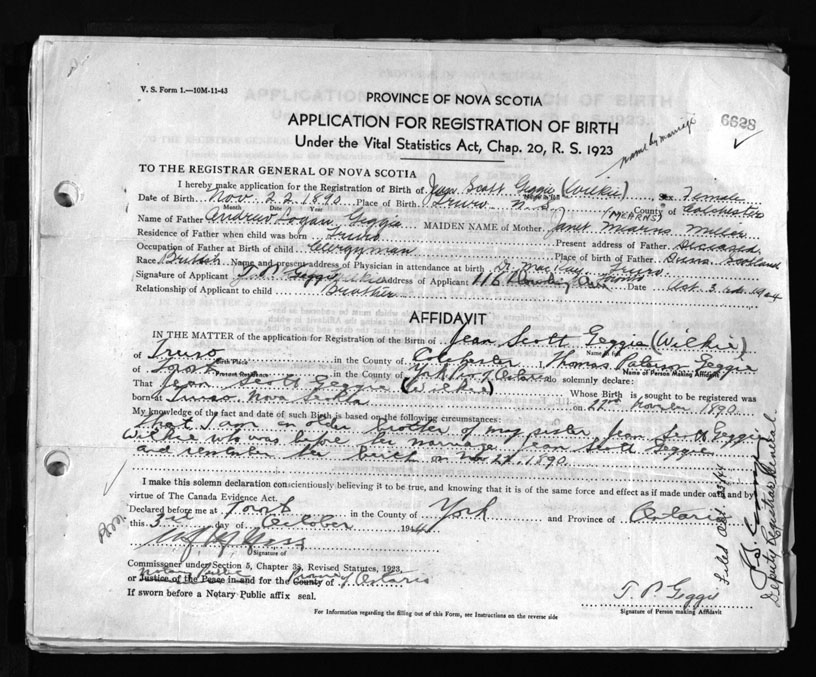 V. S. Form 1.—10M-11-43
PROVINCE OF NOVA SCOTIA
6628
APPLICATION FOR REGISTRATION OF BIRTH
name by marriage
Under the Vital Statistics Act, Chap. 20, R. S. 1923
TO THE REGISTRAR GENERAL OF NOVA SCOTIA
I hereby make application for the Registration of Birth of Jean Scott Geggie (Wilkie) Sex Female
Date of Birth Nov. 22 1890 Place of Birth Truro N. S. County of Colchester
Month Date Year
(MEARNS)
Name of Father Andrew Logan Geggie MAIDEN NAME of Mother Janet Mearns Miller
Residence of Father when child was born Truro Present address of Father Deceased
Occupation of Father at Birth of child Clergyman Place of Birth of Father Scotland
Race British Name and present address of Physician in attendance at birth D. MacKay Truro
Signature of Applicant T. P. Geggie Address of Applicant 116 Date Oct. 3rd 1944
Relationship of Applicant to child Brother
AFFIDAVIT
IN THE MATTER of the application for Registration of the Birth of Jean Scott Geggie (Wilkie)
Name in full
of Truro in the County of Colchester I, Thomas Geggie
Birth Place Name of Person Making Affidavit
of in the County of York Ontario do solemnly declare:
Present Residence
That Jean Scott Geggie (Wilkie) Whose Birth is sought to be registered was
born at Truro Nova Scotia on 22nd 1890
My knowledge of the fact and date of such Birth is based on the following circumstances:
that I am an older brother of my sister Jean Scott Geggie
Wilkie who was before her marriage Jean Scott Geggie
and remember her birth on Nov 22. 1890
I make this solemn declaration conscientiously believing it to be true, and knowing that it is of the same force and effect as if made under oath and by
virtue of The Canada Evidence Act.
Declared before me at in the County of York and Province of Ontario
this 3rd day of October 1944
Signature of
Commissioner under Section 5, Chapter 38, Revised Statutes, 1923,
Notary Public Province Ontario
or Justice of the Peace in and for the County of
If sworn before a Notary Public affix seal.
T. P. Geggie
Signature of Person making Affidavit
For Information regarding the filling out of this Form, see Instructions on the reverse side
Deputy Registrar General.